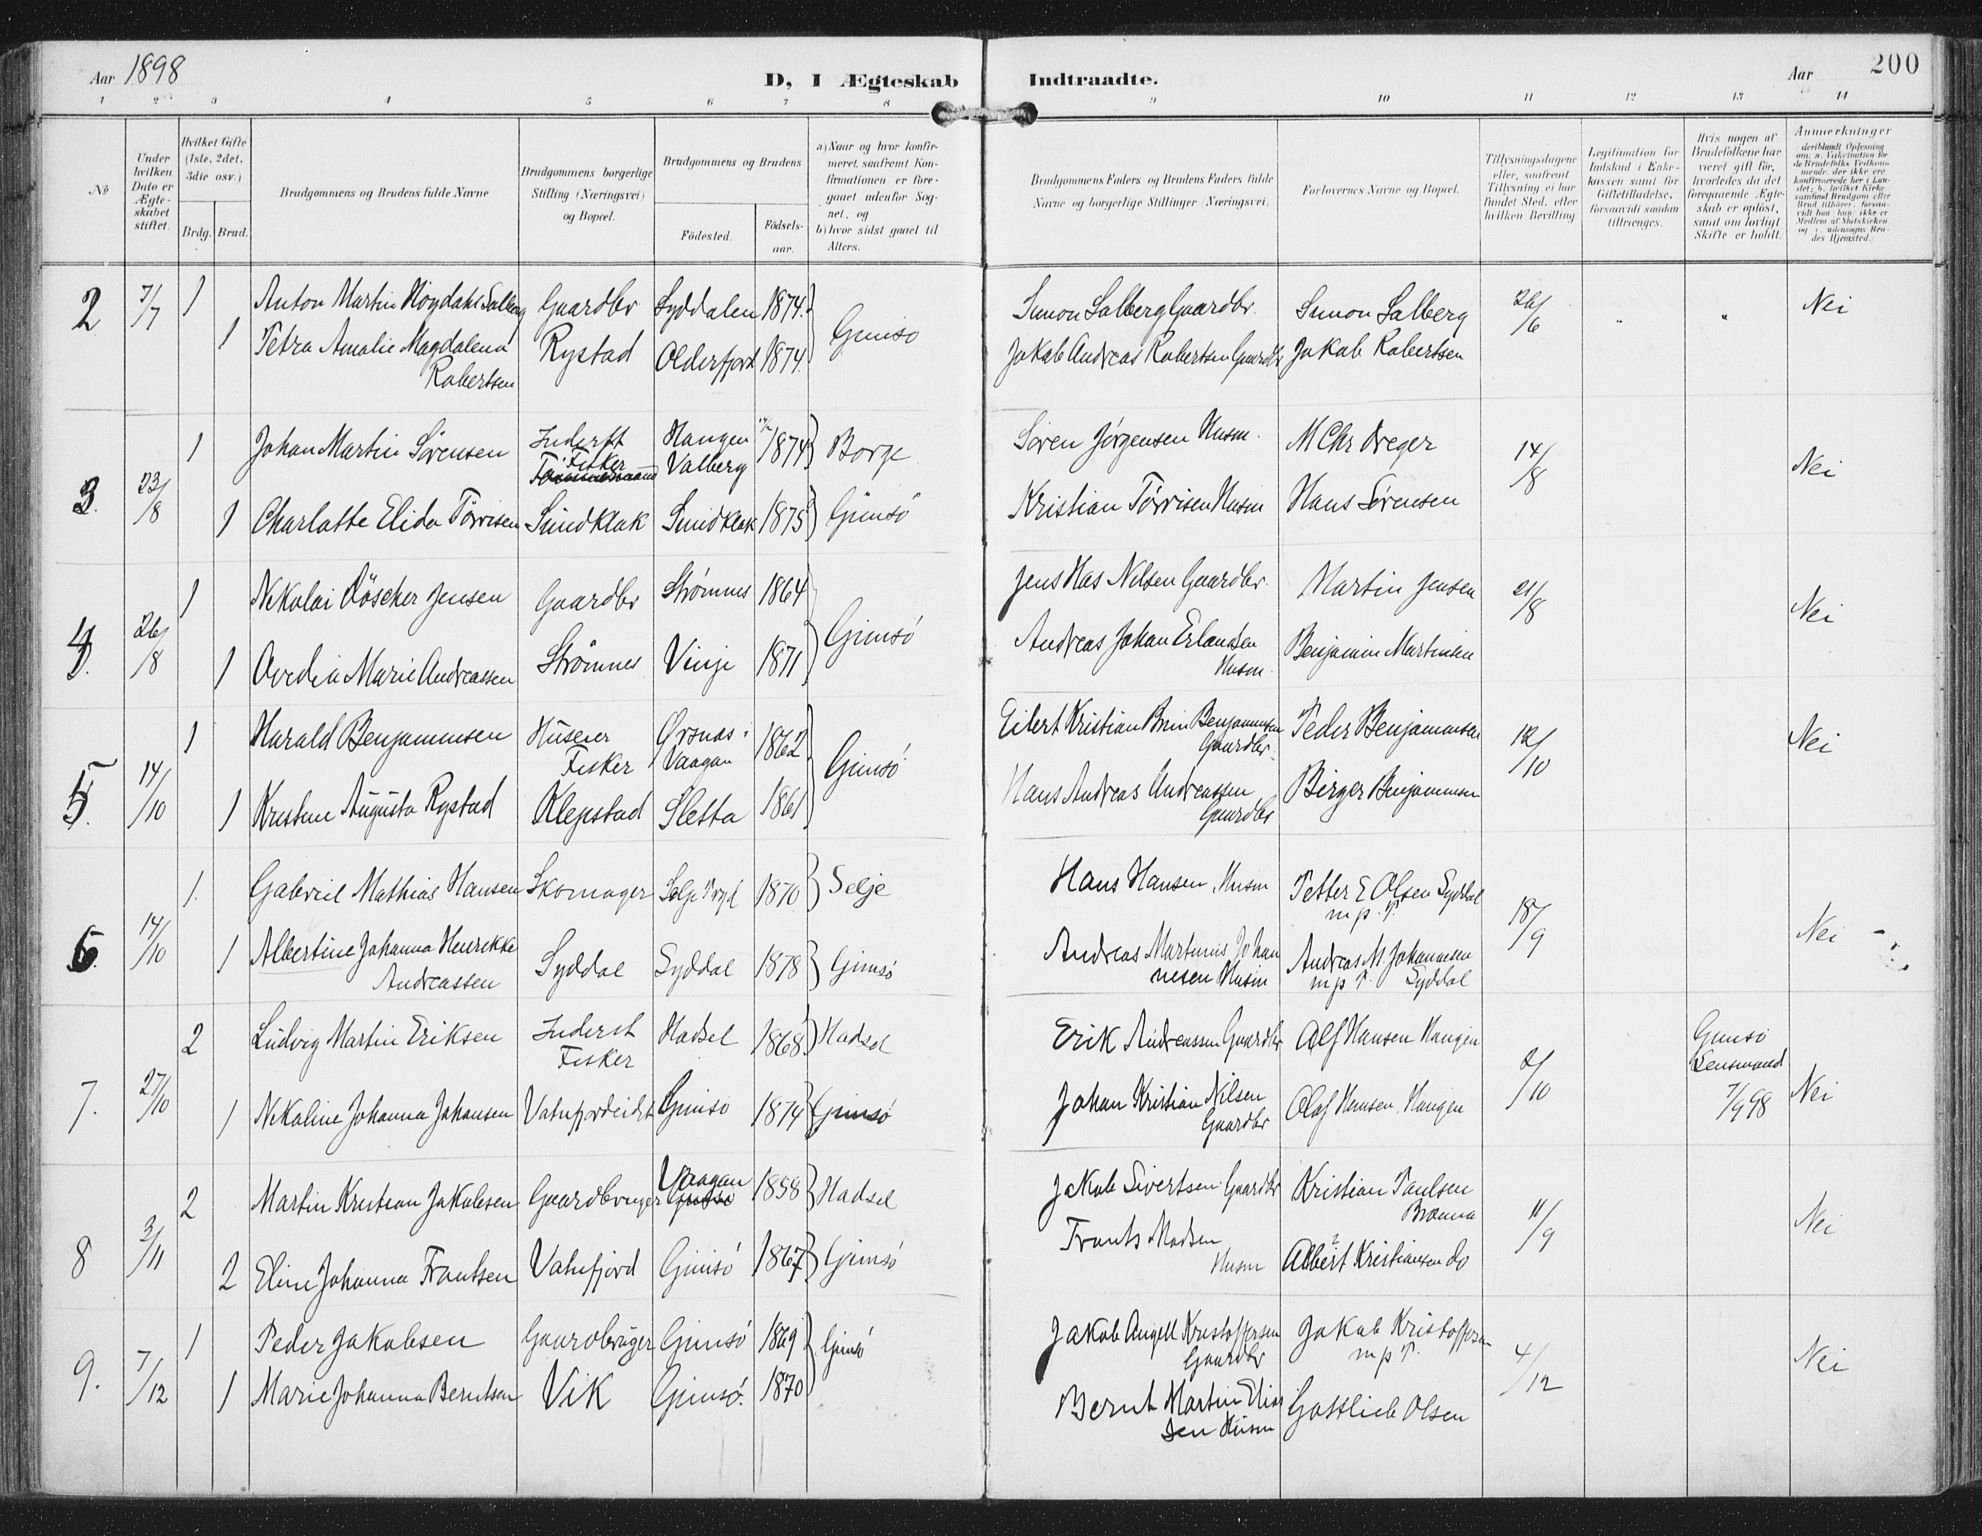 Aar 1898
D, I Ægteskab Indtraadte.
Aar 200
1 2 3 4 5 6 7 8 9 10 11 12 13 14
No
Under hvilken Dato er Ægteskabet stiftet.
Hvilket Gifte (1ste, 2det, 3die osv.)
Brdg. Brud.
Brudgommens og Brudens fulde Navne
Brudgommens borgerlige Stilling (Næringsvei) og Bopæl.
Brudgommens og Brudens
Fødested.
Fødsels-aar.
a) Naar og hvor konfirmeret, saafremt Konfirmationen er foregaaet udenfor Sognet, og
b) hvor sidst gaaet til Alters.
Brudgommens Faders og Brudens Faders fulde Navne og borgerlige Stillinger (Næringsvei).
Forlovernes Navne og Bopæl.
Tillysningsdagene eller, saafremt Tillysning ei har fundet Sted, efter hvilken Bevilling
Legitimation for Indskud i Enkekassen samt for Giftetilladelse, forsaavidt saadan tiltrænges.
Hvis nogen af Brudefolkene har været gift før, hvorledes da det foregaaende Ægteskab er opløst, samt om lovligt Skifte er holdt.
Anmerkninger
2 7/7 1 Anton Martin Høydahl Salberg Gaardbr Syddalen 1874. Gimsø Simon Salberg Gaardbr. Simon Salberg 26/6 " " Nei
1 Petra Amalie Magdalena Robertsen Rystad Olderfjord 1874 Jakob Andreas Robertsen Gaardbr Jakob Robertsen
3. 23/8 1 Johan Martin Sørensen Inderst Fisker Haugen Valberg 1874 Borge Søren Jørgensen Husm. M Chr Dreyer 14/8 Nei
1 Charlotte Elida Tørrisen Sundklak Sundklak 1875 Gimsø Kristian Tørrisen Husm Hans Sørensen
4. 26/8 1 Nikolai Jensen Gaardbr Strømnes 1864 Gimsø Jens Has Nilsen Gaardbr. Martin Jensen 21/8 Nei
1 Ovedia Marie Andreassen Strømnes Vinje 1871 Andreas Johan Erlandsen Husm. Benjamin Martinsen
5. 14/10 1 Harald Benjaminsen Huseier Fisker Ørsnes i Vaagan 1862 Gimsø Eilert Kristian Benjaminsen Gaardbr. Peder Benjaminsen 12/10 Nei
1 Kristine Augusta Rystad Klepstad Sletta 1861 Hans Andreas Andreassen Gaardbr Birger Benjaminsen
6. 14/10 1. Gabriel Mathias Hansen Skomager Selje 1870 Selje Hans Hansen, Husm Petter E Olsen Syddal m.p.P. 18/9 Nei
1 Albertine Johanna Henrikke Andreassen Syddal Syddal 1878 Gimsø Andreas Martinus Johannesen Husm Andreas M Johannesen m p P. Syddal
7. 27/10 2 Ludvig Martin Eriksen Inderst Fisker Hadsel 1868 Hadsel Erik Andreassen Gaardbr Alf Hansen Haugen 2/10 Gimsø Lensmand 7/9 98 Nei
1 Nikoline Johanna Johansen Vatnfjordeidet Gimsø 1874 Gimsø Johan Kristian Nilsen Gaardbr Olaf Hansen, Haugen
8 3/11 2 Martin Kristian Jakobsen Gaardbruger Vaagan Gimsø 1858 Hadsel Jakob Sivertsen Gaardbr Kristian Paulsen Brænna 11/9 Nei
2 Eline Johanna Frantsen Vatnfjord Gimsø 1867 Gimsø Frants Madsen Husm Albert Kristiansen do
9. 7/12 1 Peder Jakobsen Gaardbruger Gimsø 1869 Gimsø Jakob Angell Kristoffersen Gaardbr Jakob Kristoffersen m p P. 4/12 Nei
1 Marie Johanna Berntsen Vik Gimsø. 1870 Bernt Martin Eliassen Husm Gottlieb Olsen